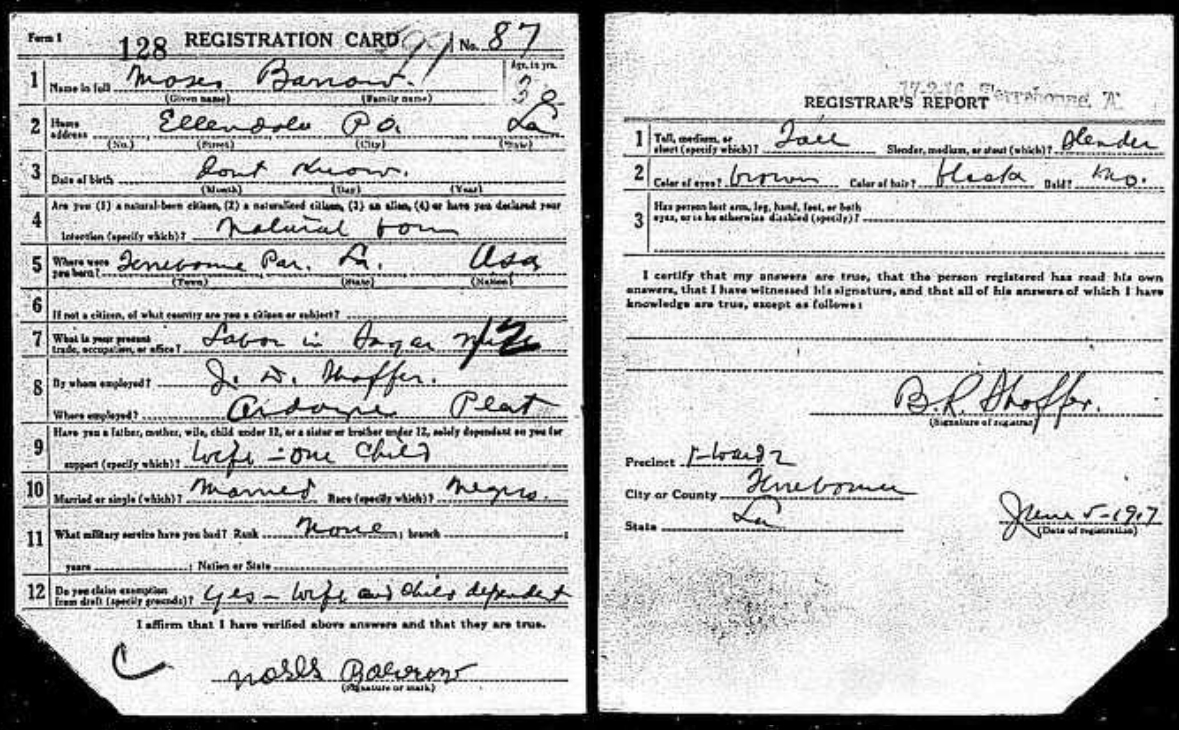 Form 1 128 REGISTRATION CARD No. 87
Age, in yrs.
1 Name in full Moses Barrow. 30
(Given name) (Family name)
2 Home address Ellendale P.O. La
(No.) (Street) (City) (State)
3 Date of birth Dont Know.
(Month) (Day) (Year)
4 Are you (1) a natural-born citizen, (2) a naturalized citizen, (3) an alien, (4) or have you declared your
intention (specify which)? Natural born
5 Where were you born? Terrebonne Par. La. Usa
(Town) (State) (Nation)
6
If not a citizen, of what country are you a citizen or subject?
7 What is your present trade, occupation, or office? Labor in Sugar
8 By whom employed? J. D. Shaffer.
Where employed? Ardoyne Plat
9 Have you a father, mother, wife, child under 12, or a sister or brother under 12, solely dependent on you for
support (specify which)? Wife - one Child
10 Married or single (which)? Married Race (specify which)? Negro.
11 What military service have you had? Rank None ; branch ;
years ; Nation or State
12 Do you claim exemption from draft (specify grounds)? Yes - Wife and Child dependent
I affirm that I have verified above answers and that they are true.
Moses Barrow
(Signature or mark)
Terrebonne
REGISTRAR'S REPORT
1 Tall, medium, or short (specify which)? Tall Slender, medium, or stout (which)? Slender
2 Color of eyes? brown Color of hair? black Bald? No.
3 Has person lost arm, leg, hand, foot, or both
eyes, or is he otherwise disabled (specify)?
I certify that my answers are true, that the person registered has read his own
answers, that I have witnessed his signature, and that all of his answers of which I have
knowledge are true, except as follows:
B. R. Shaffer.
(Signature of registrar)
Precinct 1-ward 2
City or County Terrebonne
State La
June 5-1917
(Date of registration)